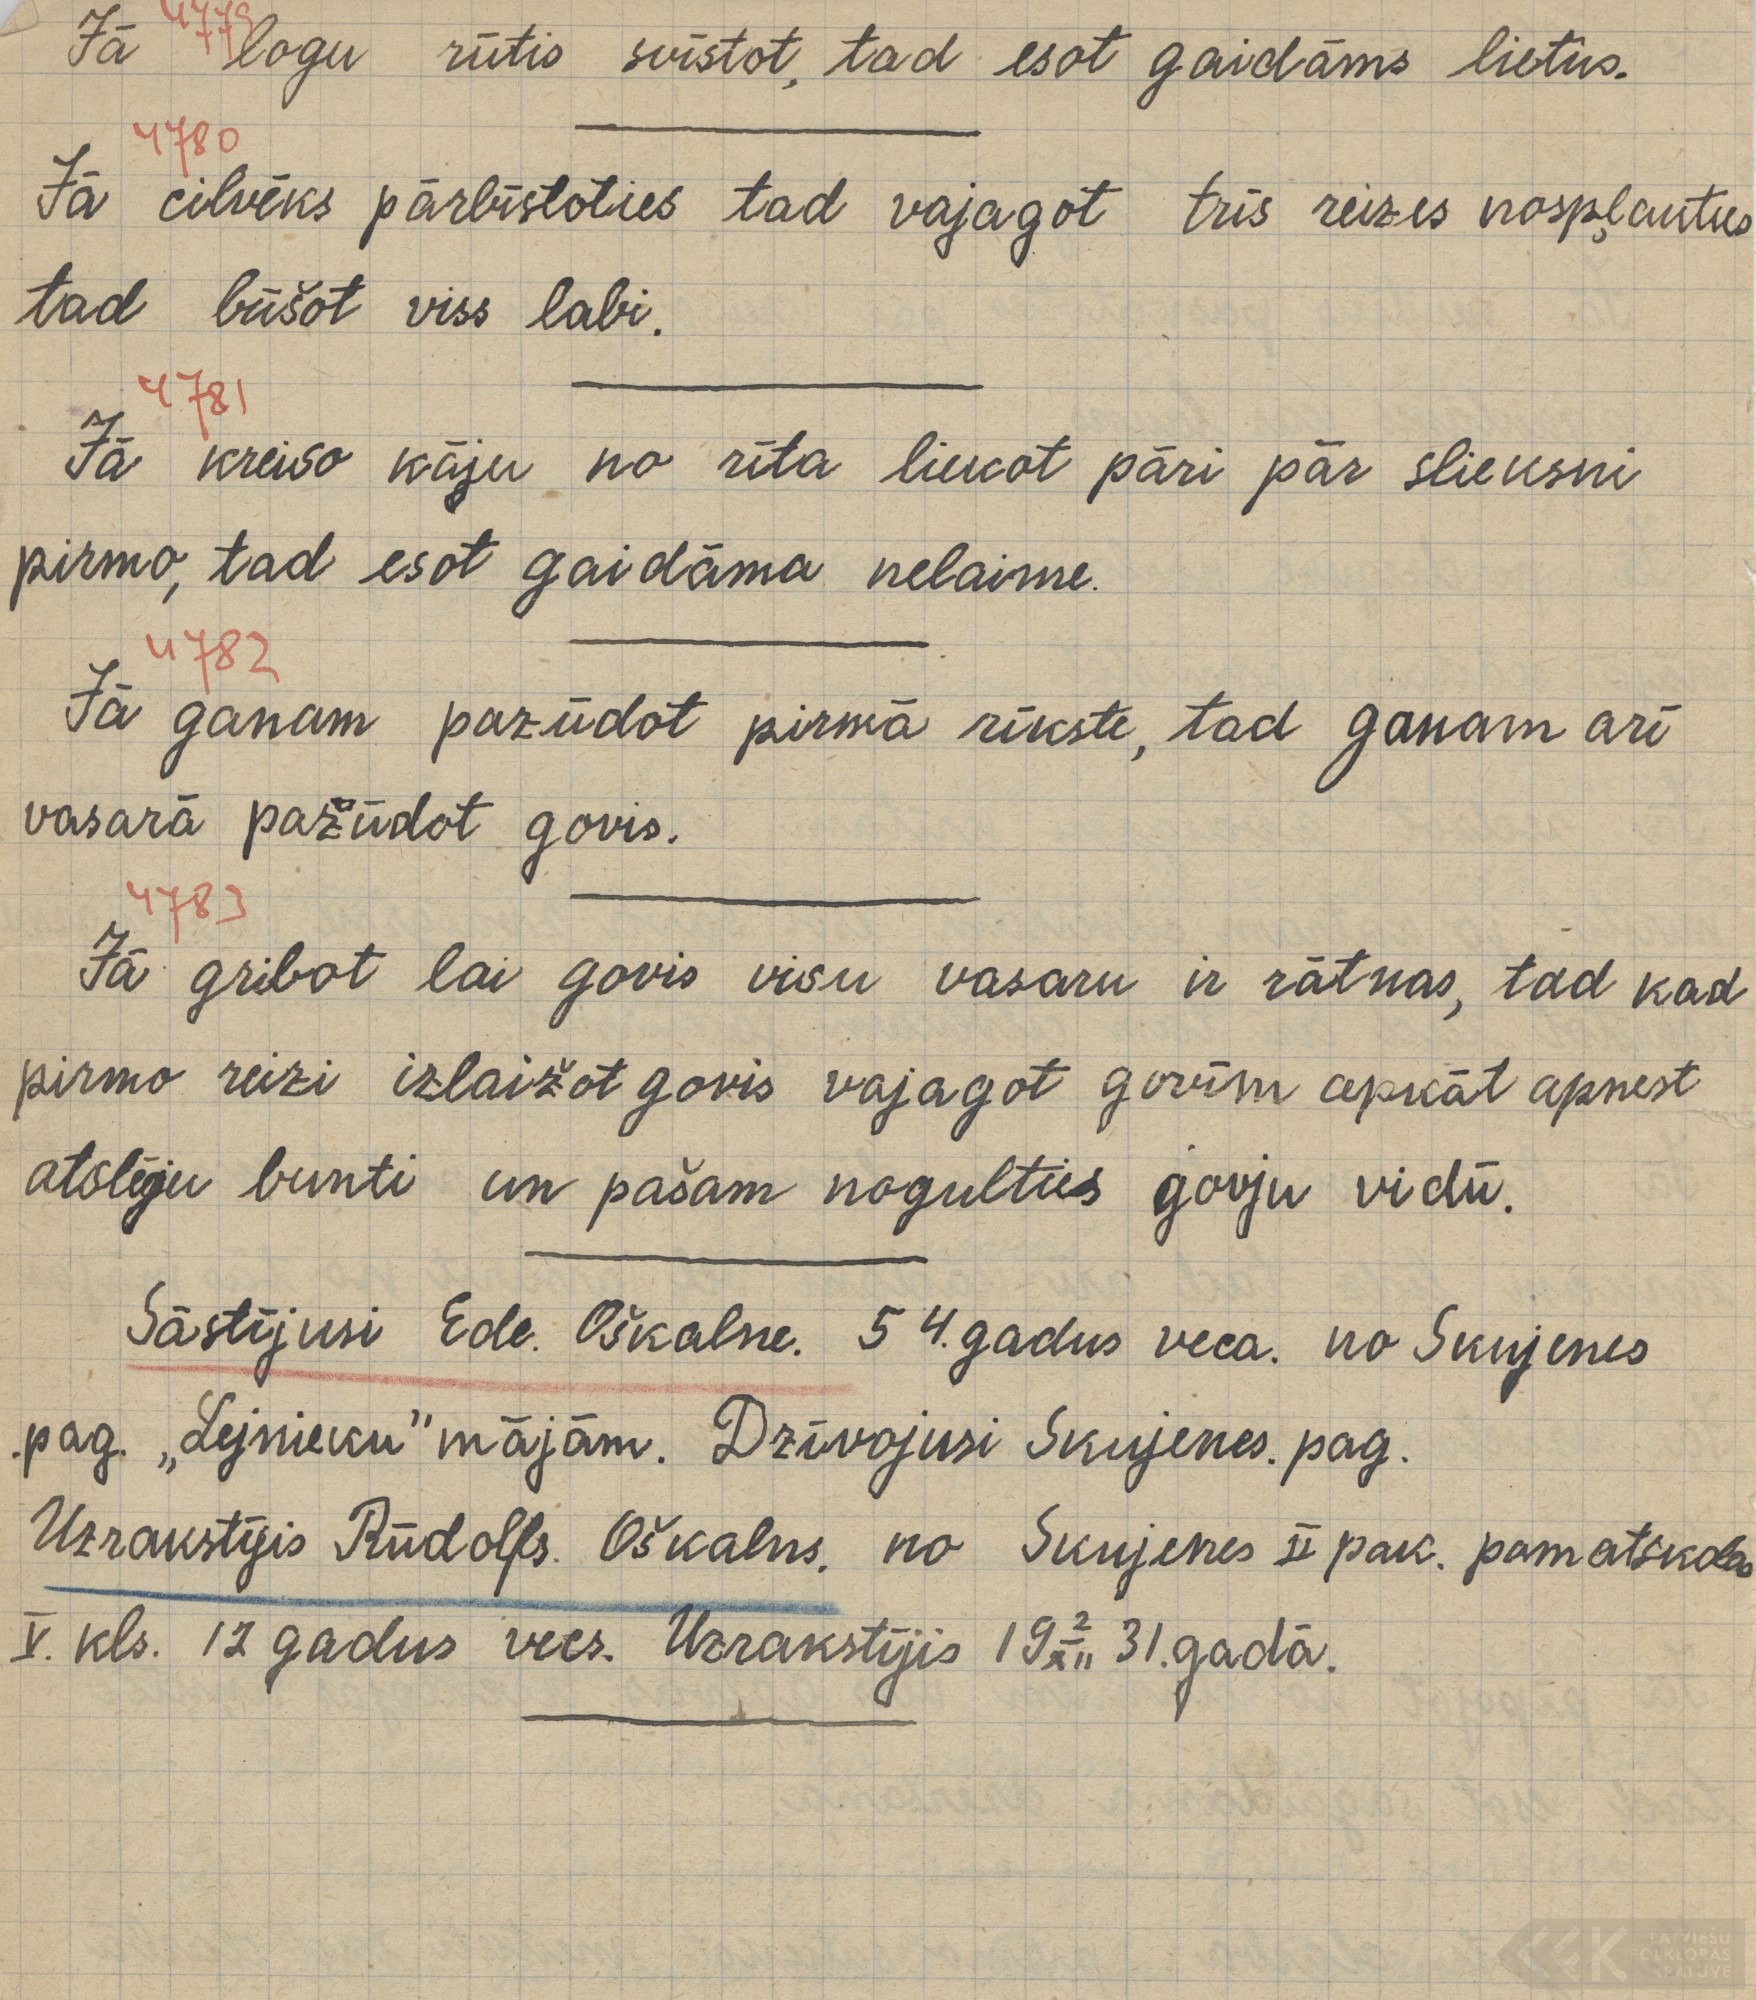 4779
Jā logu rūtis svīstot, tad esot gaidāms lietus.
4780
Jā cilvēks pārbīstoties tad vajagot trīs reizes nospļauties
tad būšot viss labi.
4781
Jā kreiso kāju no rīta liekot pāri pār slieksni
pirmo, tad esot gaidāma nelaime.
4782
Jā ganam pazūdot pirmā rīkste, tad ganam arī
vasarā pazūdot govis.
4783
Jā gribot lai govis visu vasaru ir rātnas, tad kad
pirmo reizi izlaižot govis vajagot govīm apkāt apnest
atslēgu bunti un pašam nogulties govju vidū.
Sāstījusi Ede. Oškalne. 54. gadus veca. no Skujenes
pag. „Lejnieku" mājām. Dzīvojusi Skujenes. pag.
Uzrakstījis Rūdolfs. Oškalns. no Skujenes II pak. pamatskolas
V. kls. 12 gadus vecs. Uzrakstījis 19 2/XII 31. gadā.
LATVIEŠU
FOLKLORAS
KRĀTUVE